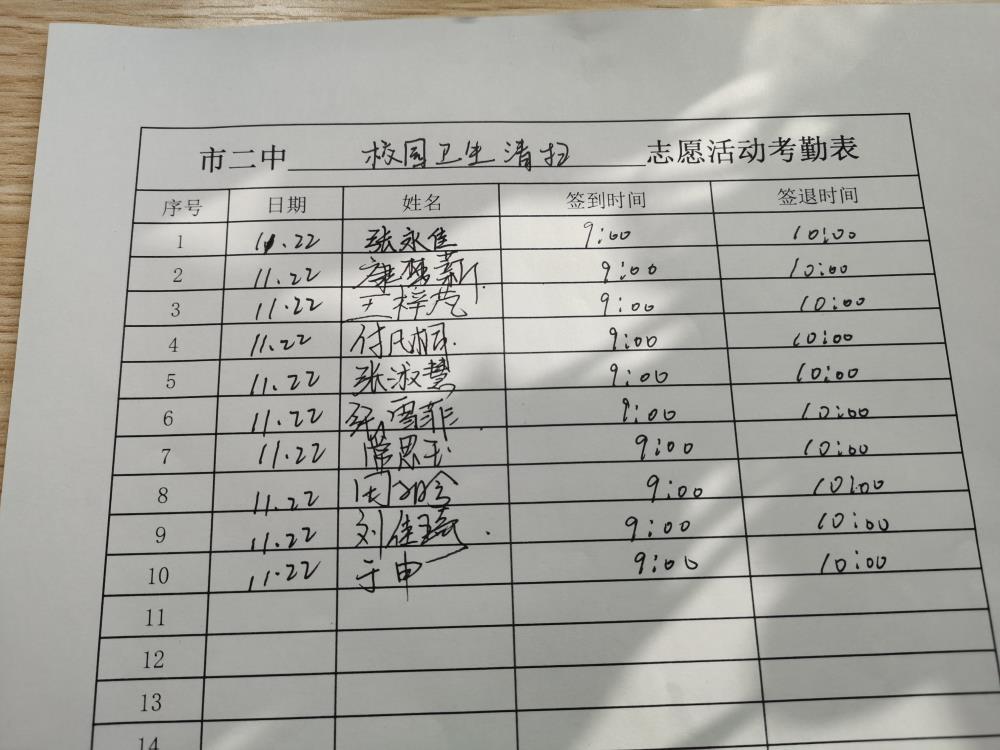 市二中 校园卫生清扫 志愿活动考勤表
序号 日期 姓名 签到时间 签退时间
1 11.22 张永佳 9:00 10:00
2 11.22 康梦薪 9:00 10:00
3 11.22 王梓芃 9:00 10:00
4 11.22 付民桐 9:00 10:00
5 11.22 张淑慧 9:00 10:00
6 11.22 雪菲 9:00 10:00
7 11.22 常思玉 9:00 10:00
8 11.22 9:00 10:00
9 11.22 刘佳琦 9:00 10:00
10 11.22 于申 9:00 10:00
11
12
13
14